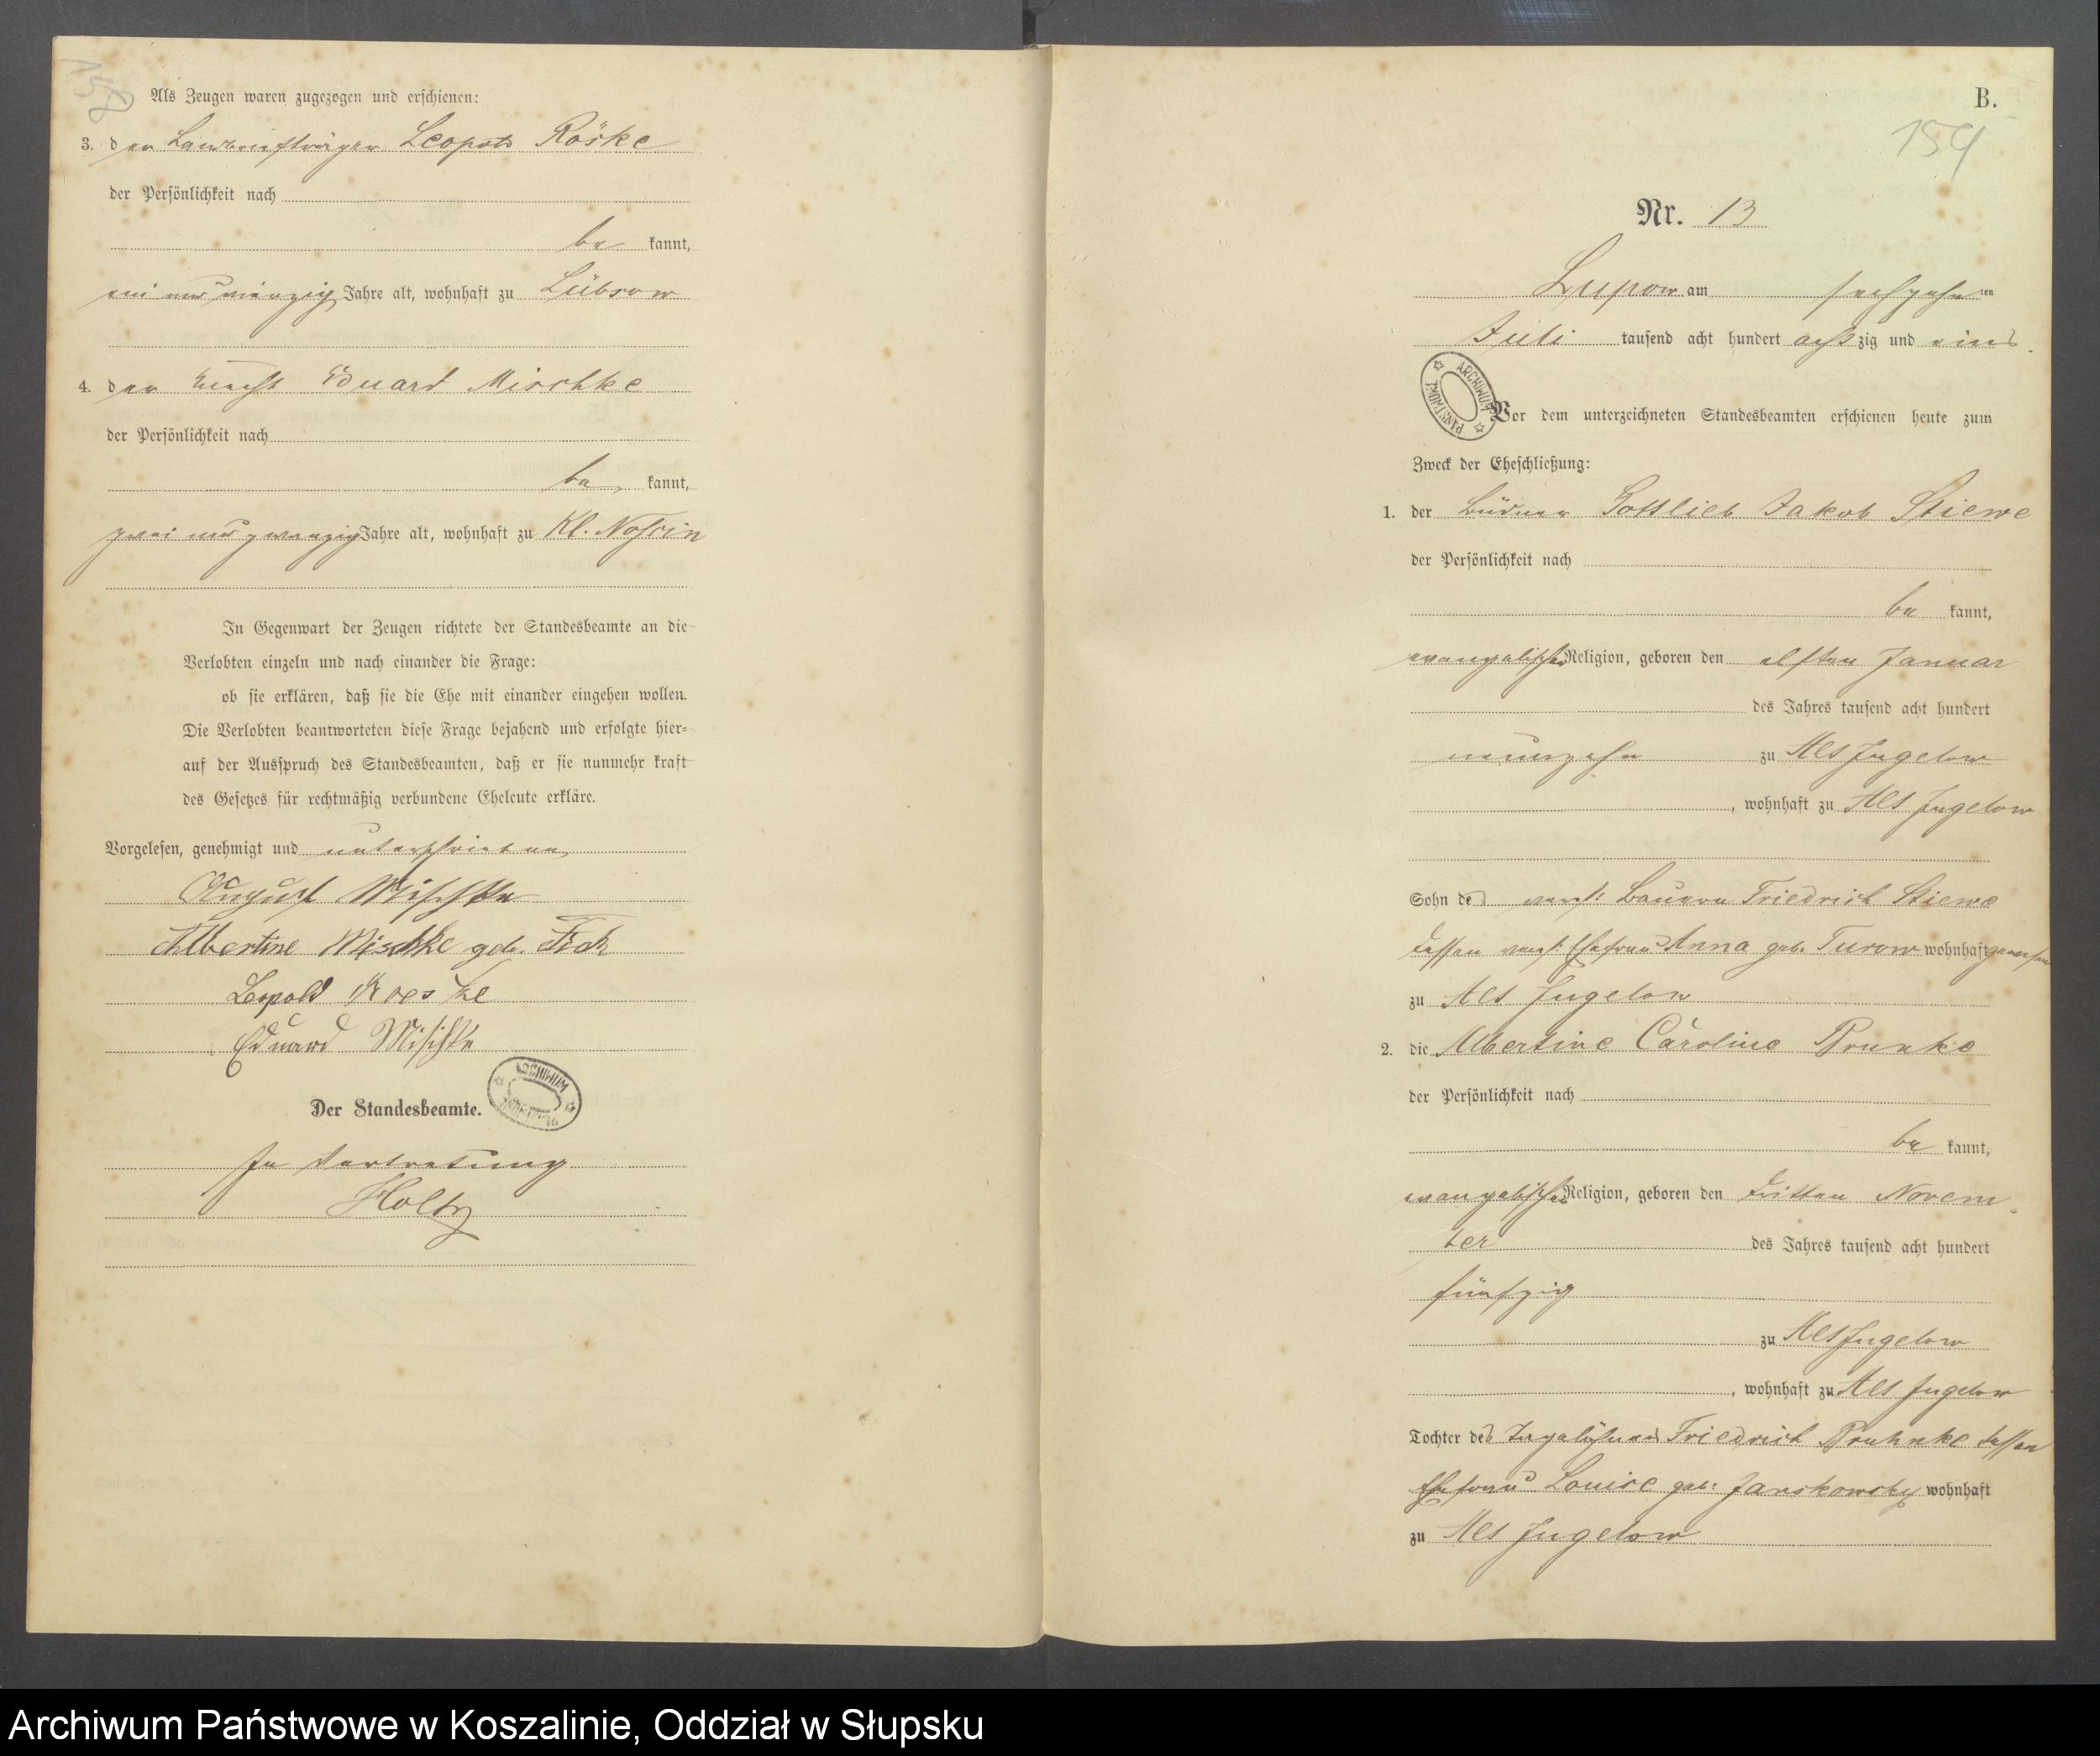 158
Als Zeugen waren zugezogen und erschienen:
3. der Leopold Röske
der Persönlichkeit nach
be kannt,
ein und vierzig Jahre alt, wohnhaft zu Lübsow
4. der Knecht Eduard Mischke
der Persönlichkeit nach
be kannt,
zwei und zwanzig Jahre alt, wohnhaft zu Kl. Nossin
In Gegenwart der Zeugen richtete der Standesbeamte an die
Verlobten einzeln und nach einander die Frage:
ob sie erklären, daß sie die Ehe mit einander eingehen wollen.
Die Verlobten beantworteten diese Frage bejahend und erfolgte hier-
auf der Ausspruch des Standesbeamten, daß er sie nunmehr kraft
des Gesetzes für rechtmäßig verbundene Eheleute erkläre.
Vorgelesen, genehmigt und unterschrieben
August Mischke
Albertine Mischke geb. Fick
Leopold Roeske
Eduard Mischke
Der Standesbeamte.
ARCHIWUM
In Vertretung
Holtz
B.
159
Nr. 13
Lupow am sechzehn ten
Juli tausend acht hundert acht zig und eins.
ARCHIWUM PAŃSTWOWE
Vor dem unterzeichneten Standesbeamten erschienen heute zum
Zweck der Eheschließung:
1. der Büdner Gottlieb Jakob Stiewe
der Persönlichkeit nach
be kannt,
evangelischer Religion, geboren den elften Januar
des Jahres tausend acht hundert
neunzehn zu Alt Jugelow
, wohnhaft zu Alt Jugelow
Sohn des verst: Bauern Friedrich Stiewe
dessen verst: Ehefrau Anna geb. Turow wohnhaft gewesen
zu Alt Jugelow
2. die Albertine Caroline Prunke
der Persönlichkeit nach
be kannt,
evangelischer Religion, geboren den dritten Novem-
ber des Jahres tausend acht hundert
fünfzig
zu Alt Jugelow
, wohnhaft zu Alt Jugelow
Tochter des Tagelöhners Friedrich Pruhnke dessen
Ehefrau Louise geb: Janskowsky wohnhaft
zu Alt Jugelow
Archiwum Państwowe w Koszalinie, Oddział w Słupsku